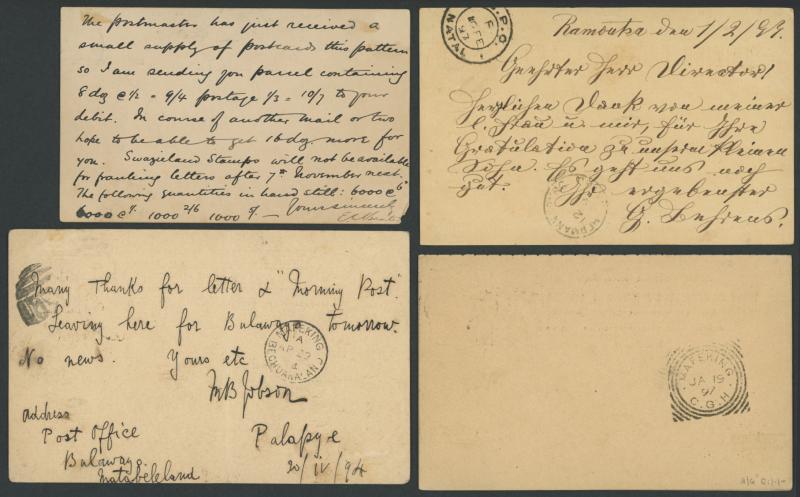 The Postmaster has just received a
small supply of postcards this pattern
so I am sending you parcel containing
8 dz @ 1/2 = 9/4 postage 1/3 = 10/7 to your
debit. In course of another mail or two
hope to be able to get 16 dz. more for
you. Swazieland Stamps will not be available
for franking letters after 7th November next.
The following quantities in hand still: 6000 @ 6d
6000 @ 1/. 1000 2/6 1000 5/. — Yours sincerely
G.P.O.
NATAL
Ramoutsa den 1/2/99.
Geehrter Herr Director!
Herzlichen Dank von meiner
l. Frau u. mir, für Ihre
Gratulation zu unserm kleinen
Sohn. Es geht uns noch
gut. Ihr ergebenster
G. Behrens.
HERMANNSBURG
Many thanks for letter & "Morning Post".
Leaving here for Bulawayo tomorrow.
No news. Yours etc
MAFEKING
A
AP 22
BECHUANALAND
Jobson
Address
Post Office
Bulawayo
Matabeleland
Palapye
20/IV/94
MAFEKING
JA 19
97
C.G.H